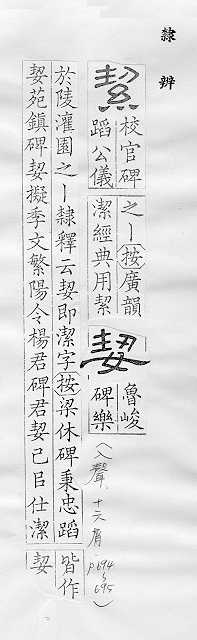 隸辨
絜
校官碑
蹈公儀
之丨按廣韻
潔經典用絜
契
魯峻
碑樂
(入聲 十六屑 p.694
695)
於陵灌園之丨隸釋云契即潔字按梁休碑秉忠蹈
契苑鎮碑契擬季文繁陽令楊君碑君契己㠯仕潔
皆作
契